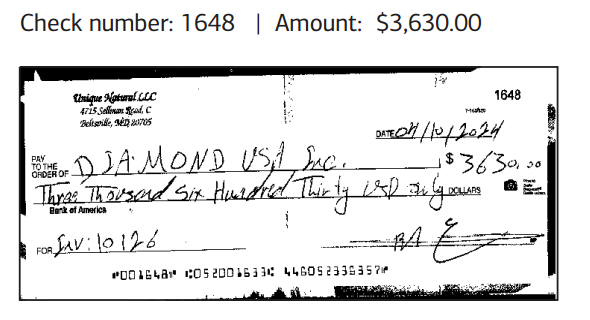 Check number: 1648 | Amount: $3,630.00
Unique Natural LLC
4715 Sellman Road, C
Beltsville, MD 20705
1648
DATE 04/10/2024
PAY TO THE ORDER OF DIAMOND USA Inc. $ 3630.00
Three Thousand Six Hundred Thirty USD only DOLLARS
Bank of America
FOR INV: 10126
⑈001648⑈ ⑆052001633⑆ 446052336357⑈